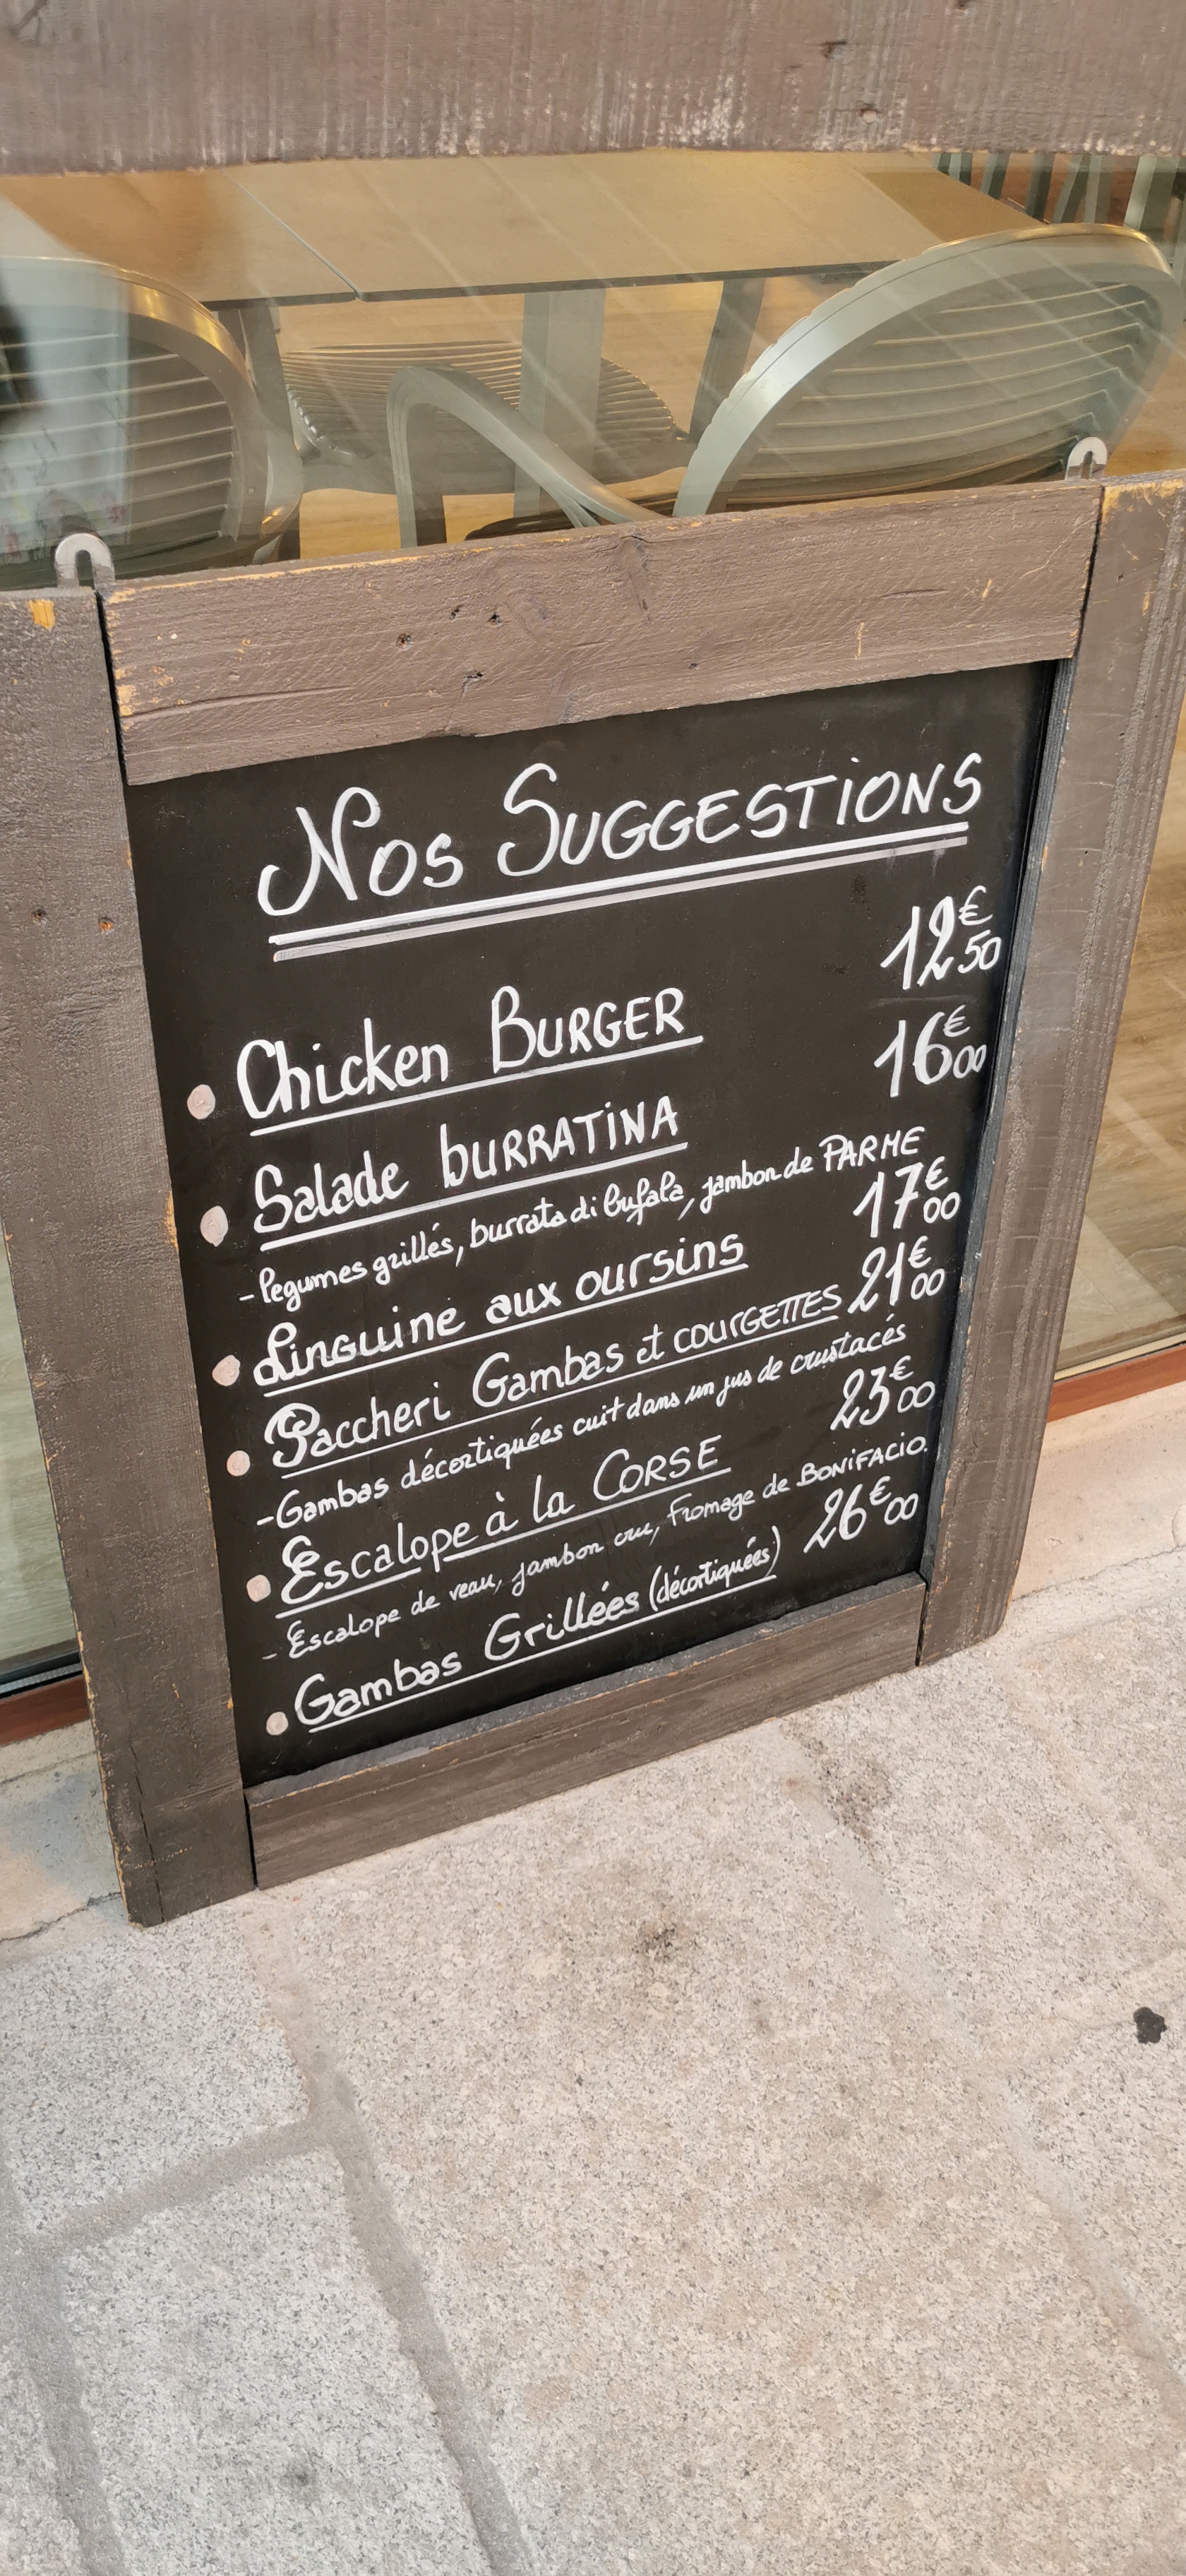 Nos SUGGESTIONS
• Chicken BURGER 12€50
• Salade bURRATINA 16€00
- légumes grillés, burrata di bufala, jambon de PARME
• Linguine aux oursins 17€00
• Paccheri Gambas et courGETTES 21€00
- Gambas décortiquées cuit dans un jus de crustacés
• Escalope à la CORSE 23€00
- Escalope de veau, jambon cru, Fromage de BONIFACIO.
• Gambas Grillées (décortiquées) 26€00